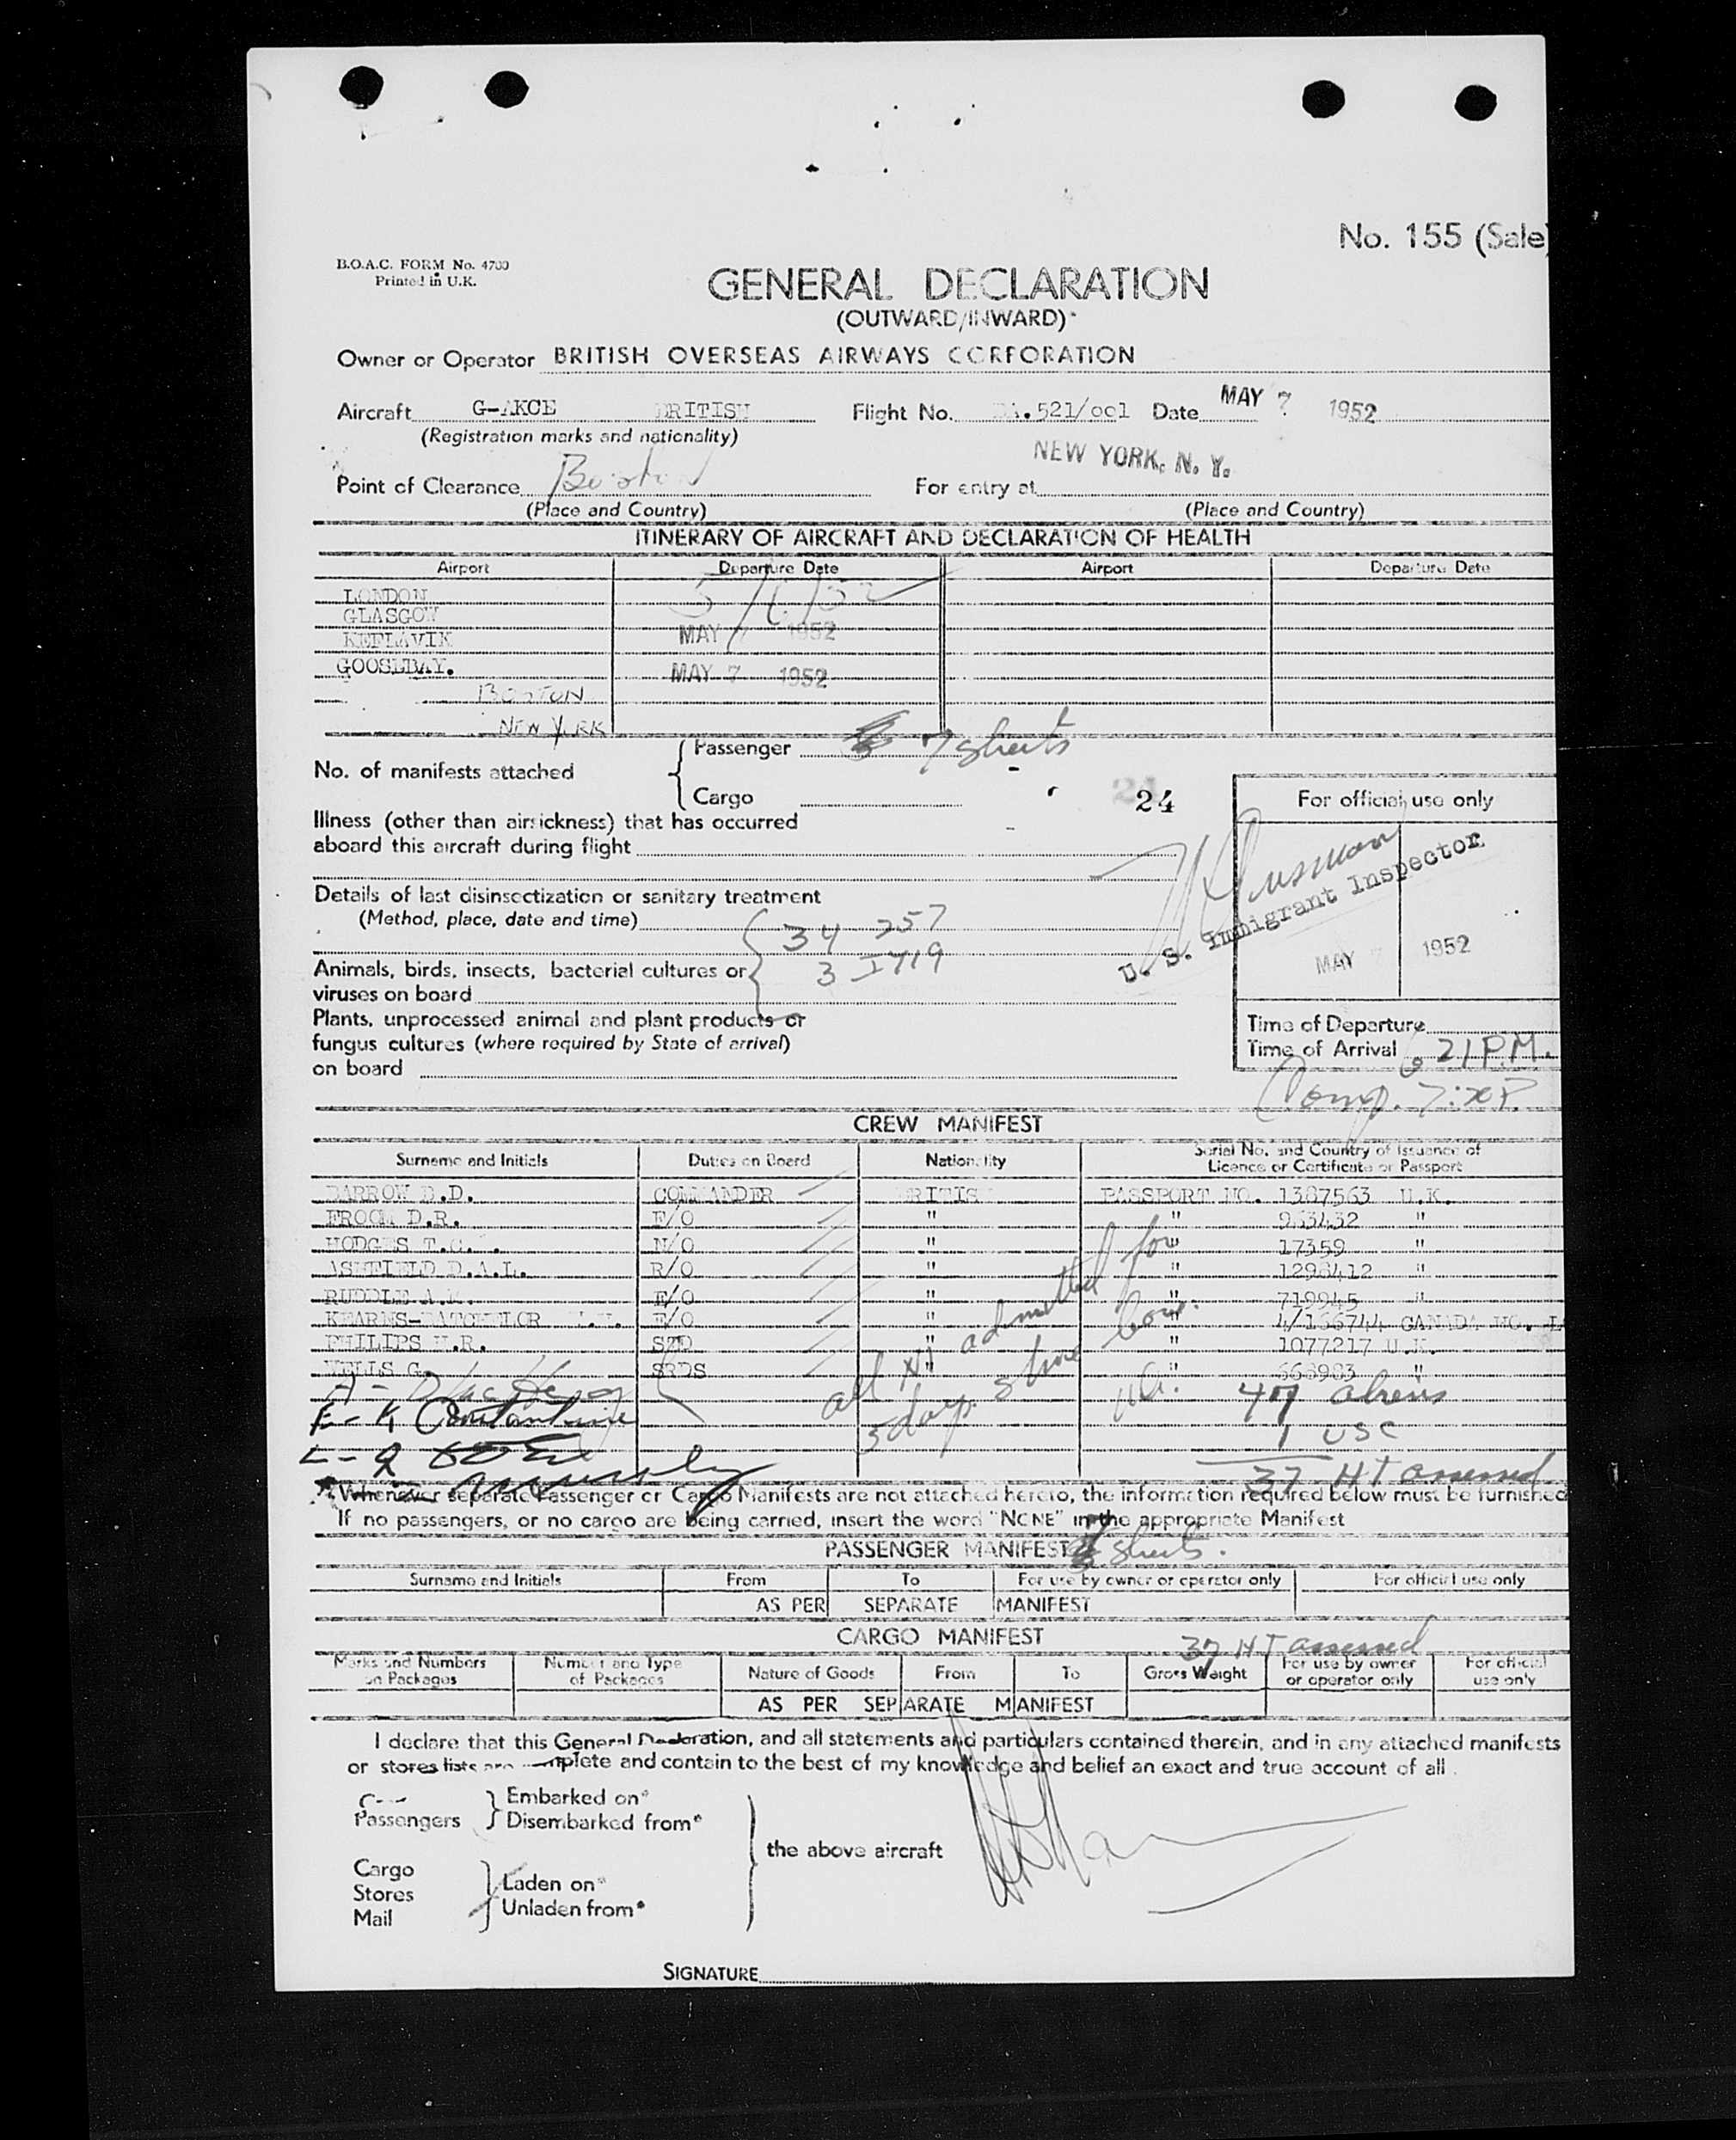 No. 155 (Sale)
B.O.A.C. FORM No. 4700
Printed in U.K.
GENERAL DECLARATION
(OUTWARD/INWARD)*
Owner or Operator BRITISH OVERSEAS AIRWAYS CORPORATION
Aircraft G-AKCE BRITISH Flight No. .521/001 Date MAY 7 1952
(Registration marks and nationality)
NEW YORK, N. Y.
Point of Clearance Boston For entry at
(Place and Country) (Place and Country)
ITINERARY OF AIRCRAFT AND DECLARATION OF HEALTH
Airport Departure Date Airport Departure Date
LONDON 5/6/52
GLASGOW
KEFLAVIK MAY 7 1952
GOOSEBAY. MAY 7 1952
BOSTON
NEW YORK
No. of manifests attached
Passenger 7 sheets
Cargo
24
For official use only
Illness (other than airsickness) that has occurred
aboard this aircraft during flight
U. S. Immigrant Inspector
MAY 7 1952
Details of last disinsectization or sanitary treatment
(Method, place, date and time)
34 257
3 I419
Animals, birds, insects, bacterial cultures or
viruses on board
Plants, unprocessed animal and plant products or
fungus cultures (where required by State of arrival)
on board
Time of Departure
Time of Arrival 6 21 P.M.
Comp.
CREW MANIFEST
Surname and Initials Duties on Board Nationality Serial No. and Country of Issuance of
Licence or Certificate or Passport
BARROW D.D. COMMANDER BRITISH PASSPORT NO. 1387563 U.K.
FROOM D.R. F/O " " 953432 "
HODGES T.C. N/O " " 17359 "
ASHFIELD D.A.L. R/O " " 1298412 "
RUDDLE A. E/O " " 719945 "
KEARNS-BATCHELOR E/O " " 4/166744 CANADA
PHILIPS H.R. STD " " 1077217 U.K.
WELLS G. SRDS " " 668983 "
all admitted for
5 days
47 aliens
1 USC
37 HT assessed
* Whenever separate Passenger or Cargo Manifests are not attached hereto, the information required below must be furnished
If no passengers, or no cargo are being carried, insert the word "NONE" in the appropriate Manifest
PASSENGER MANIFEST sheets.
Surname and Initials From To For use by owner or operator only For official use only
AS PER SEPARATE MANIFEST
CARGO MANIFEST 37 HT assessed
Marks and Numbers on Packages Number and Type of Packages Nature of Goods From To Gross Weight For use by owner or operator only For official use only
AS PER SEPARATE MANIFEST
I declare that this General Declaration, and all statements and particulars contained therein, and in any attached manifests
or stores lists are complete and contain to the best of my knowledge and belief an exact and true account of all
Passengers
Embarked on*
Disembarked from*
the above aircraft
Cargo
Stores
Mail
Laden on*
Unladen from*
SIGNATURE